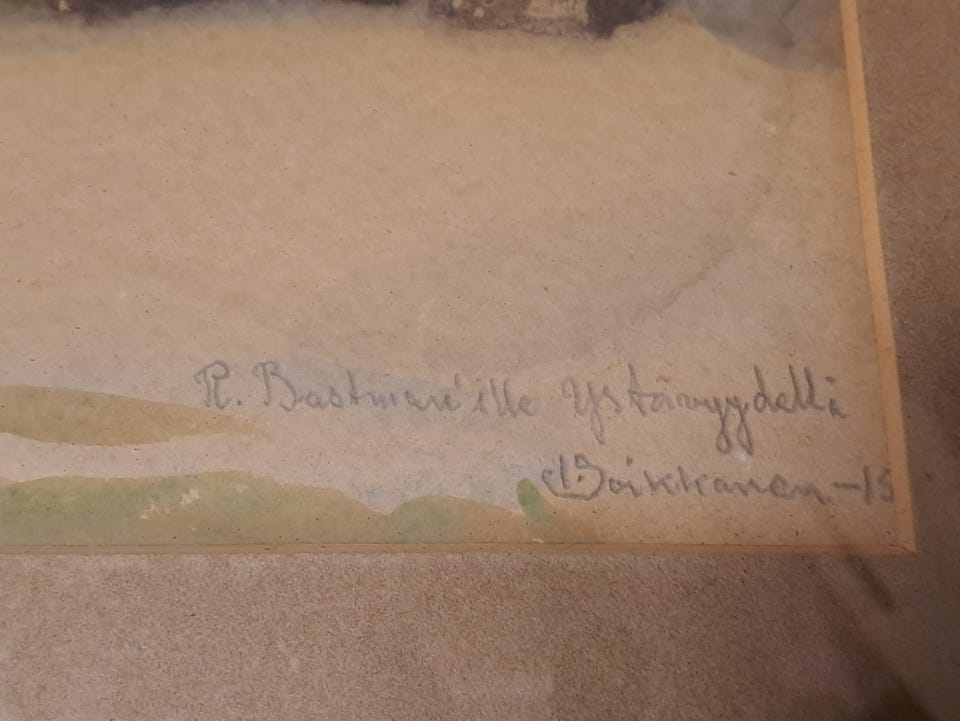 R. Bastman'ille Ystävyydellä
Soikkanen -15